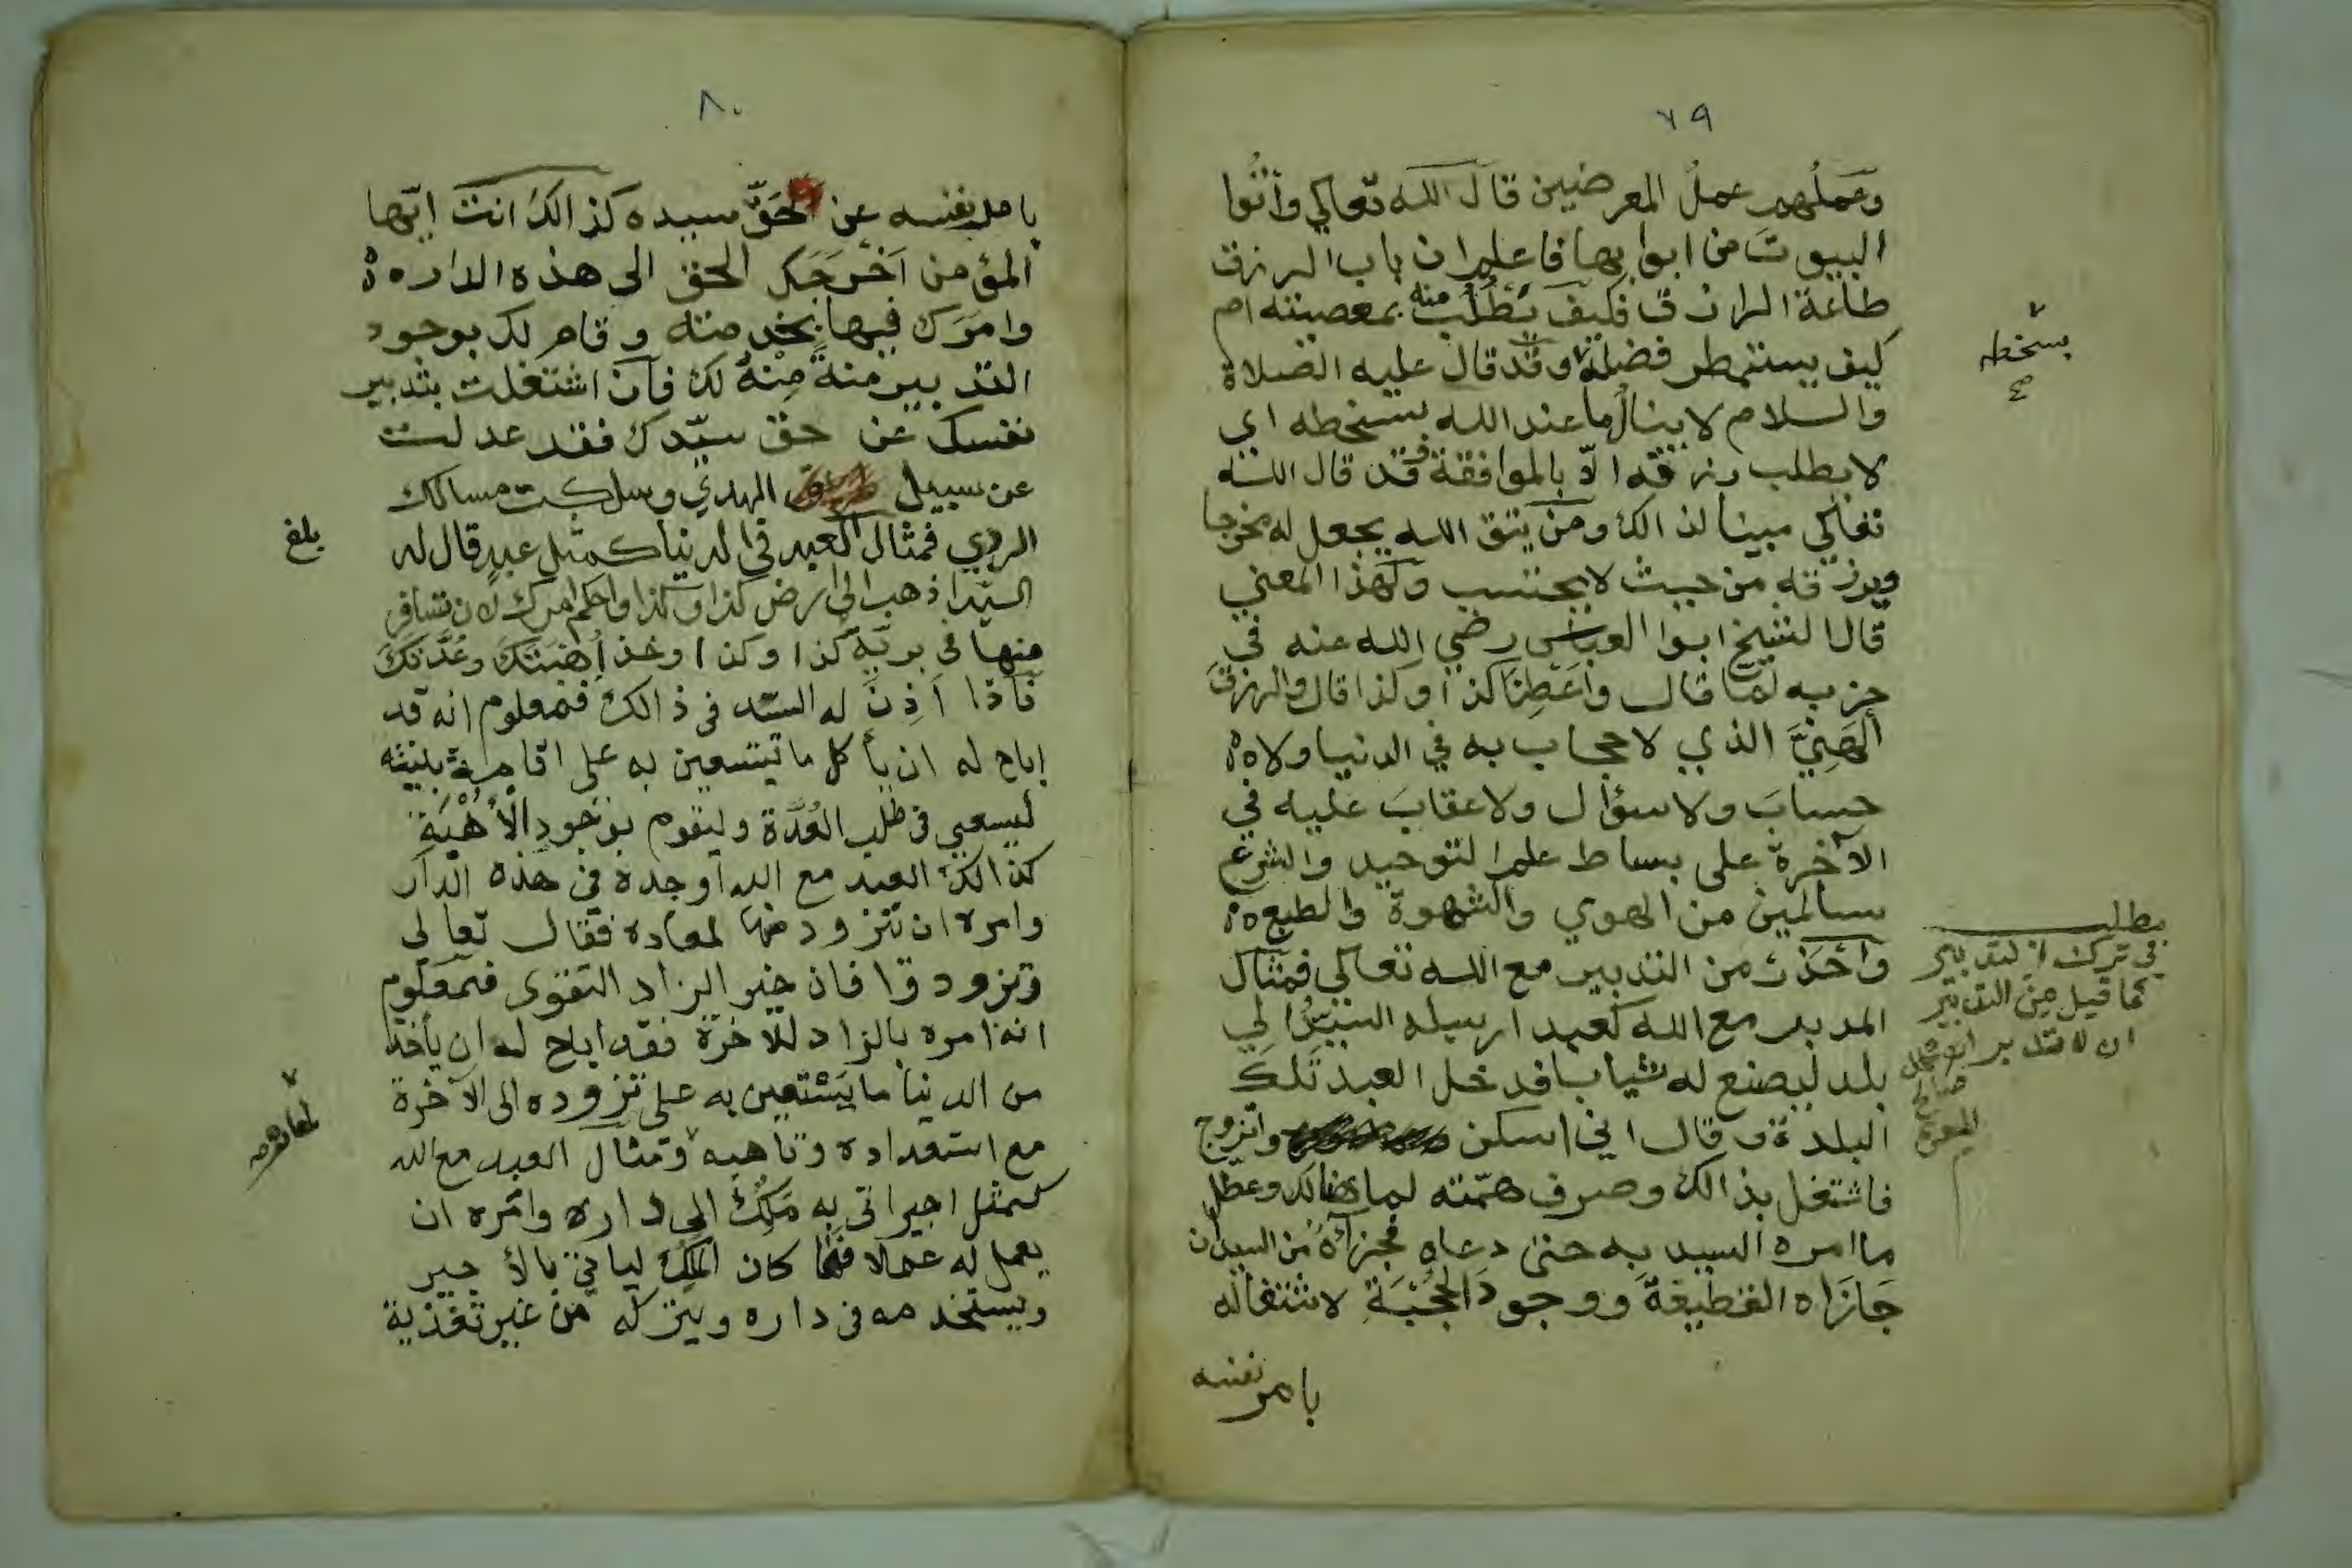 ٧٩
وعملهم عمل المعرضين قال الله تعالي وأتوا
البيوت من ابوابها فاعلم ان باب الرزق
طاعة الرازق فكيف يطلب منه بمعصيته ام
كيف يستمطر فضله وقد قال عليه الصلاة
والسلام لا ينال ما عند الله بسخطه اي
لا يطلب رزقه الا بالموافقة وقد قال الله
تعالي مبينا لذالك ومن يتق الله يجعل له مخرجا
ويرزقه من حيث لا يحتسب ولهذا المعني
قال الشيخ ابوا العباس رضي الله عنه في
حزبه لما قال وأعطنا كذا وكذا قال والرزق
الهني الذي لا حجاب به في الدنيا ولا
حساب ولا سؤال ولا عقاب عليه في
الآخرة على بساط علم التوحيد والشرع
سالمين من الهوي والشهوة والطبع
وأحذر من التدبير مع الله تعالي فمثال
المدبر مع الله كعبد ارسله السيد الي
بلد ليصنع له ثيابا فدخل العبد تلك
البلدة وقال اني اسكن واتزوج
فاشتغل بذالك وصرف همته لما هنالك وعطل
ما امره السيد به حتى دعاه فجزاؤه من السيد ان
جازاه القطيعة ووجود الحجبة لاشتغاله
بامر نفسه
بسخطه
مطلب
في ترك التدبير
كما قيل من التدبير
ان لا تدبر
٨٠
بامر نفسه عن حق سيده كذالك انت ايها
المؤمن اخرجك الحق الى هذه الدار
وامرك فيها بخدمته وقام لك بوجود
التدبير منة منه لك فان اشتغلت بتدبير
نفسك عن حق سيدك فقد عدلت
عن سبيل الهدي وسلكت مسالك
الردي فمثال العبد في الدنيا كمثل عبد قال له
السيد اذهب الى ارض كذا وكذا واحكم امرك لان تسافر
منها في برية كذا وكذا وخذ أهبتك وعدتك
فاذا أذن له السيد في ذالك فمعلوم انه قد
اباح له ان يأكل ما يستعين به على اقامة بنيته
ليسعي في طلب العدة وليقوم بوجود الأهبة
كذالك العبد مع الله أوجده في هذه الدار
وامره ان يتزود منها لمعاده فقال تعالى
وتزودوا فان خير الزاد التقوى فمعلوم
انه امره بالزاد للآخرة فقد اباح له ان يأخذ
من الدنيا ما يستعين به على تزوده الى الآخرة
مع استعداده وتأهبه ومثال العبد مع الله
كمثل اجير اتى به ملك الى داره وامره ان
يعمل له عملا فما كان الملك ليأتي بالأجير
ويستخدمه في داره ويتركه من غير تغذية
بلغ